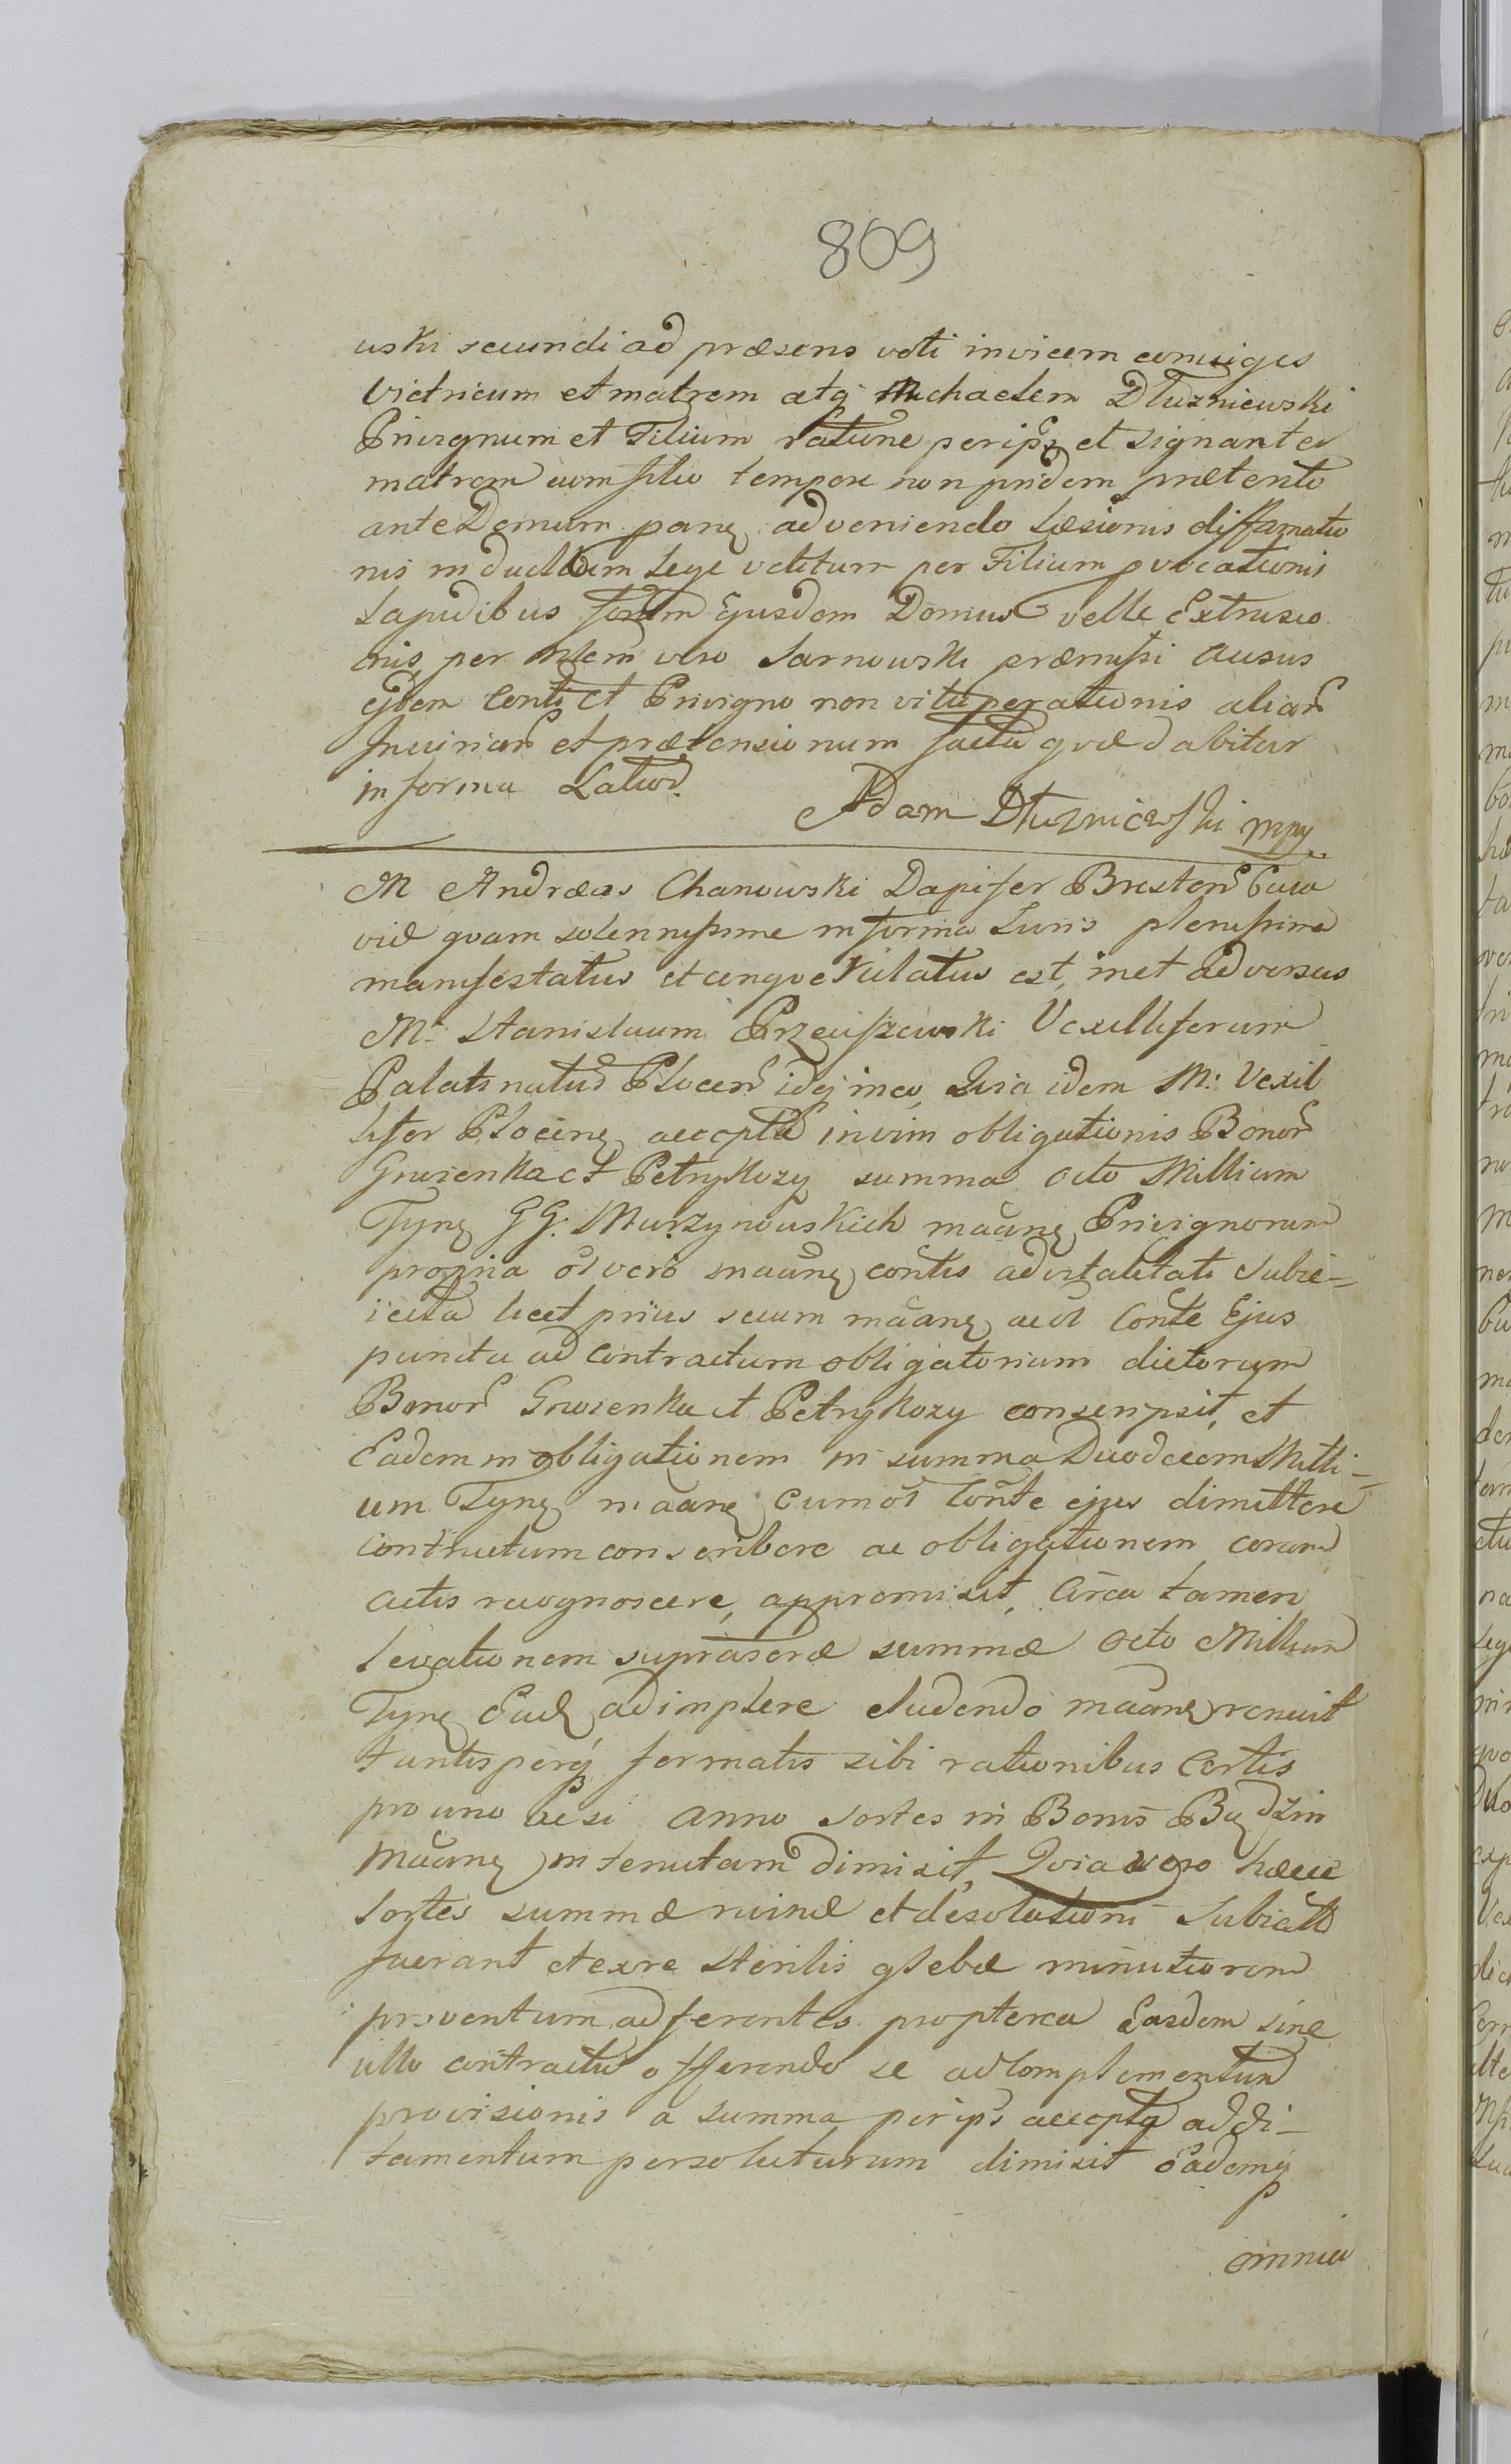 809
uski secundi ad præsens voti invicem coniuges
Vitricum et matrem atq Michaelem Dłuzniewski
Privignum et Filium ratione per ipsq et signanter
matrem cum filio tempore non pridem prætento
ante Domum panq adveniendo Læsionis diffamatio
nis in duellum Lege vetitum per Filium pvocationis
Lapidibus ejusdem Domus velle Extrusio
nis, per vero Sarnowski præmissi ausus
ejdem Conti et Privigno non vituperationis aliar
Iniuriar et prætensionum facta qvæ dabitur
in forma Latior.
Adam Dłuzniewski mpp
M Andreas Chanowski Dapifer Bresten Cuia
viæ qvam solennissime in forma Iuris plenissima
manifestatus et conqvestulatus est, inet adversus
M. Stanislaum Przeciszewski Vexilliferum
Palatinatus Plocen idq in eo, Quia idem M: Vexil
lifer Plocenq accepta in vim obligationis Bonor
Gnozenka et Petrykozy summa octo Millium
Tynq GG. Murzynowskich mãanq Privignorum
propria ol vero mãanq contis advitalitati Subie-
iecta licet prius secum mãanq ac ol Conte Ejus
puncta ad contractum obligatorium dictorum
Bonor Gnozenka et Petrykozy conscripsit, et
Eadem in obligationem in summa Duodecem Milli-
um Tynq mãanq cum ol Conte ejus dimittere
contractum conscribere ac obligationem coram
actis recognoscere, appromisit, Circa tamen
levationem suprascræ summæ octo Millium
Tynq Eadq adimplere eludendo mãanq renuit
tantisperq formatis sibi rationibus Certis
pro uno acsi anno Sortes in Bonis Bądzin
Mãanq in tenutam dimisit, Qvia vero hæcce
Sortes summæ ruinæ et desolationi Subiectæ
fuerant et exre Sterilis glebæ minutiorem
proventum adferentes propterea Easdem sine
ullo contractu offerendo se ad Complementum
provisionis a summa per ips accepta addi-
tamentum persoluturum dimisit Eademq
omnia